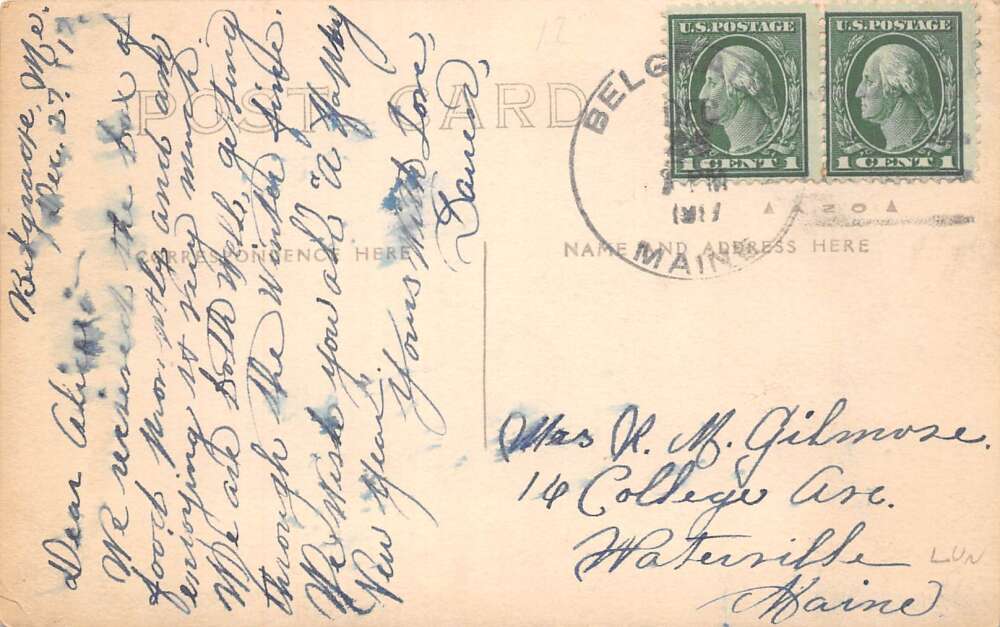 Belgrade, Me.
Dec. 27, '17.
Dear Alice:-
We received the box of
food promptly and are
enjoying it very much
We are both well, getting
through the Winter fine.
We wish you all "A Happy
New Year".
Yours With Love,
POST CARD
CORRESPONDENCE HERE
NAME AND ADDRESS HERE
U.S.POSTAGE
1 CENT 1
U.S.POSTAGE
1 CENT 1
DEC
1917
MAINE
Mrs R. M. Gilmore.
14 College Ave.
Waterville
Maine
12
LUN